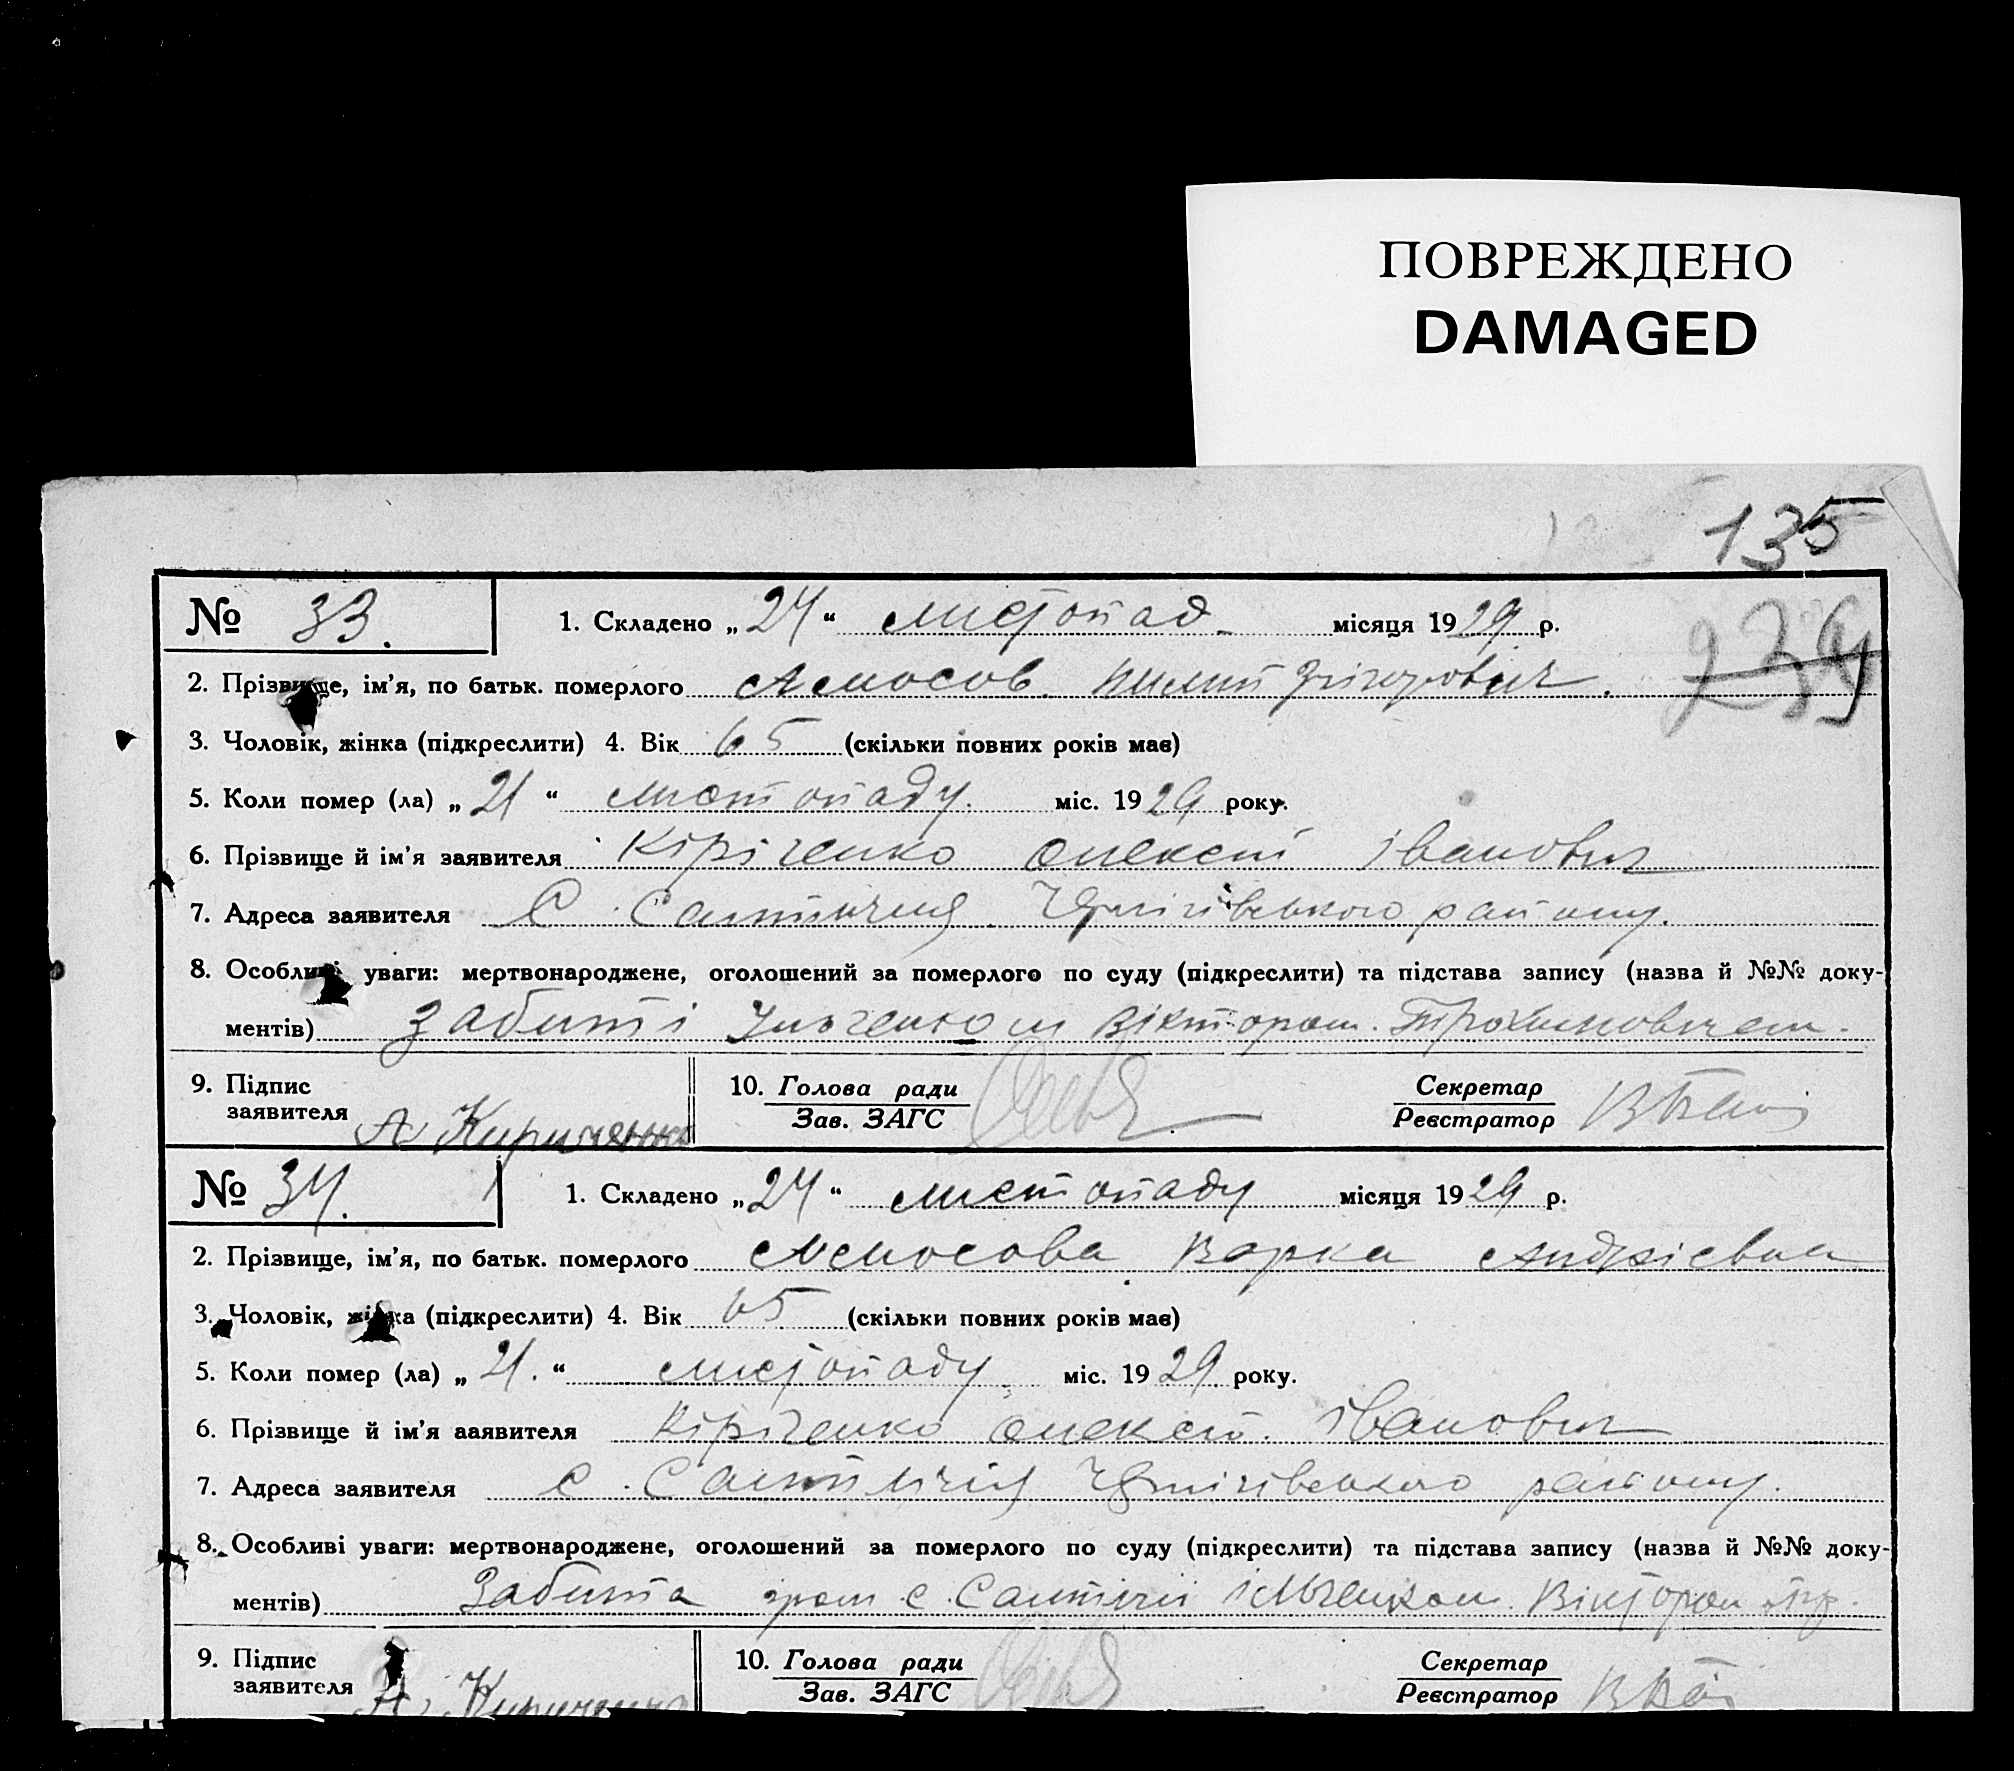 ПОВРЕЖДЕНО
DAMAGED
135
239
№ 33. 1. Складено „24“ листопад місяця 1929 р.
2. Прізвище, ім’я, по батьк. померлого Амосов Пилип Грігорович.
3. Чоловік, жінка (підкреслити) 4. Вік 65 (скільки повних років має)
5. Коли помер (ла) „21“ листопаду. міс. 1929 року.
6. Прізвище й ім’я заявителя Кіріченко Олексій Іванович
7. Адреса заявителя С. Салтичия району.
8. Особливі уваги: мертвонароджене, оголошений за померлого по суду (підкреслити) та підстава запису (назва й №№ доку-
ментів) забиті Ільченком Віктором Трохимовичем.
9. Підпис заявителя А Кириченко 10. Голова ради Секретар
Зав. ЗАГС Реєстратор
№ 34. 1. Складено „24“ листопаду місяця 1929 р.
2. Прізвище, ім’я, по батьк. померлого Амосова Варка Андрієвна
3. Чоловік, жінка (підкреслити) 4. Вік 65 (скільки повних років має)
5. Коли помер (ла) „21.“ листопаду міс. 1929 року.
6. Прізвище й ім’я заявителя Кіріченко Олексій. Іванович
7. Адреса заявителя с. Салтичія району.
8. Особливі уваги: мертвонароджене, оголошений за померлого по суду (підкреслити) та підстава запису (назва й №№ доку-
ментів) Забита гром с. Салтичії Ільченком Віктором
9. Підпис заявителя А. Кириченко 10. Голова ради Секретар
Зав. ЗАГС Реєстратор